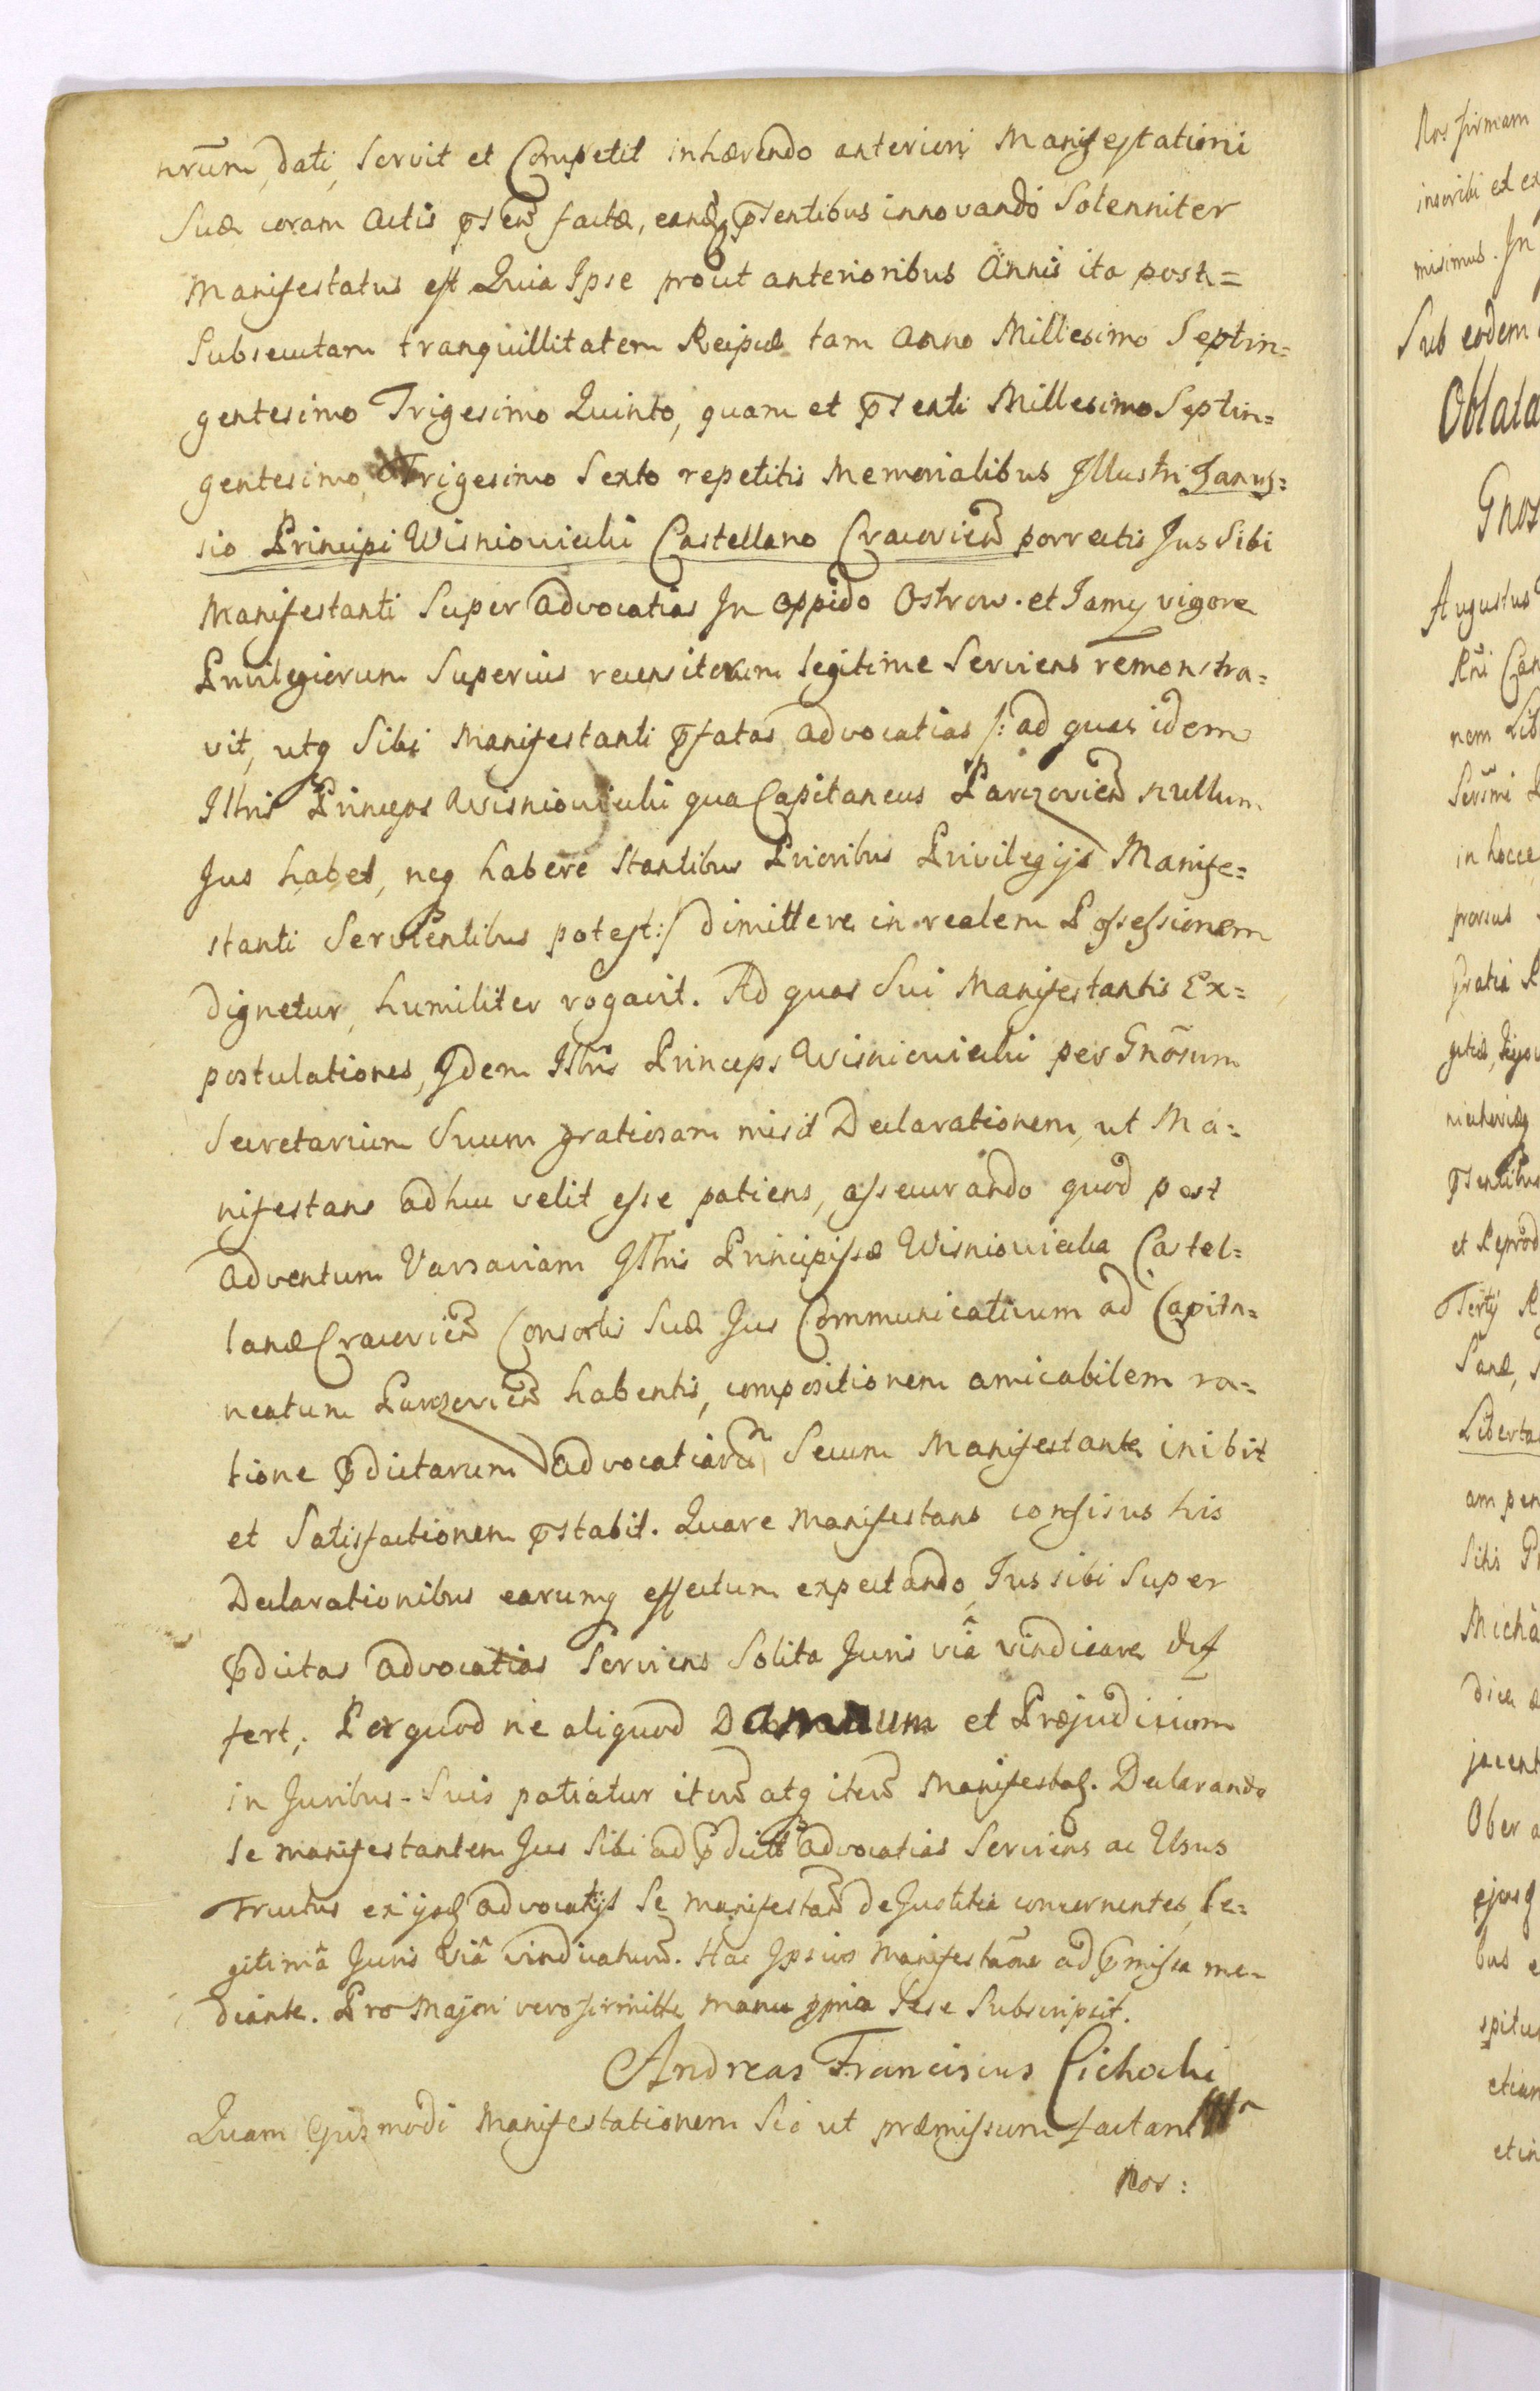 nrũm, dati, servit et Competit inhærendo anteriori Manifestationi
Suæ coram Actis pñsen̄ factæ, eandq̃ pñsentibus innovando Solenniter
Manifestatus est Quia Ipse prout anterioribus Annis ita post=
Subsecutam tranquillitatem Reipuæ tam Anno Millesimo Septin=
gentesimo Trigesimo Quinto, quam et pñsenti Millesimo Septin=
gentesimo, Trigesimo Sexto repetitis Memorialibus Illustri Janus=
sio Principi Wisniowiecki Castellano Cracovien̄ porrectis Jus Sibi
Manifestanti Super Advocatias In Oppido Ostrow. et Jamy vigore
Privilegiorum Superius recensitorum legitime Serviens remonstra=
vit, utq̃ Sibi Manifestanti p̄fatas Advocatias /: ad quas idem
Illris Princeps Wisniowiecki qua Capitaneus Parczovien̄ nullum
Jus habet, neq̃ habere Stantibus Prioribus Privilegijs Manife=
stanti Servientibus potest :/ dimittere in realem Possessionem
Dignetur, humiliter rogavit. Ad quas Sui Manifestantis Ex=
postulationes, Idem Illris Princeps Wisniowiecki per Gnosum
Secretarium Suum gratiosam misit Declarationem, ut Ma=
nifestans adhuc velit esse patiens, assecurando quod post
Adventum Varsaviam Illris Principissæ Wisniowiecka Castel=
lanæ Cracovien̄ Consortis Suæ Jus Communicativum ad Capita=
neatum Parczovien̄ habentis, compositionem amicabilem ra=
tione p̄dictarum Advocatiarũ Secum Manifestante inibit
et Satisfactionem p̄stabit. Quare Manifestans confisus his
Declarationibus earumq̃ effectum expectando, Jus sibi Super
p̄dictas Advocatias Serviens Solita Juris viâ vindicare dif
fert, Per quod ne aliquod Damnum et Præjudicium
in Juribus Suis patiatur iterū atq̃ iterū Manifestaẗ. Declarando
Se manifestantem Jus Sibi ad p̄dictas Advocatias Serviens ac Usus
Fructus ex ijsd̃ Advocatijs Se manifestan̄ de Justitia concernentes, le=
gitimâ Juris Viâ vindicaturū. Hac Ipsius Manifestãone ad p̄missa me=
diante. Pro Majori vero firmitte manu ppria Sese Subscripsit.
Andreas Franciscus Cichocki
Quam ejusmodi Manifestationem Sic ut præmissum factam
Nos: